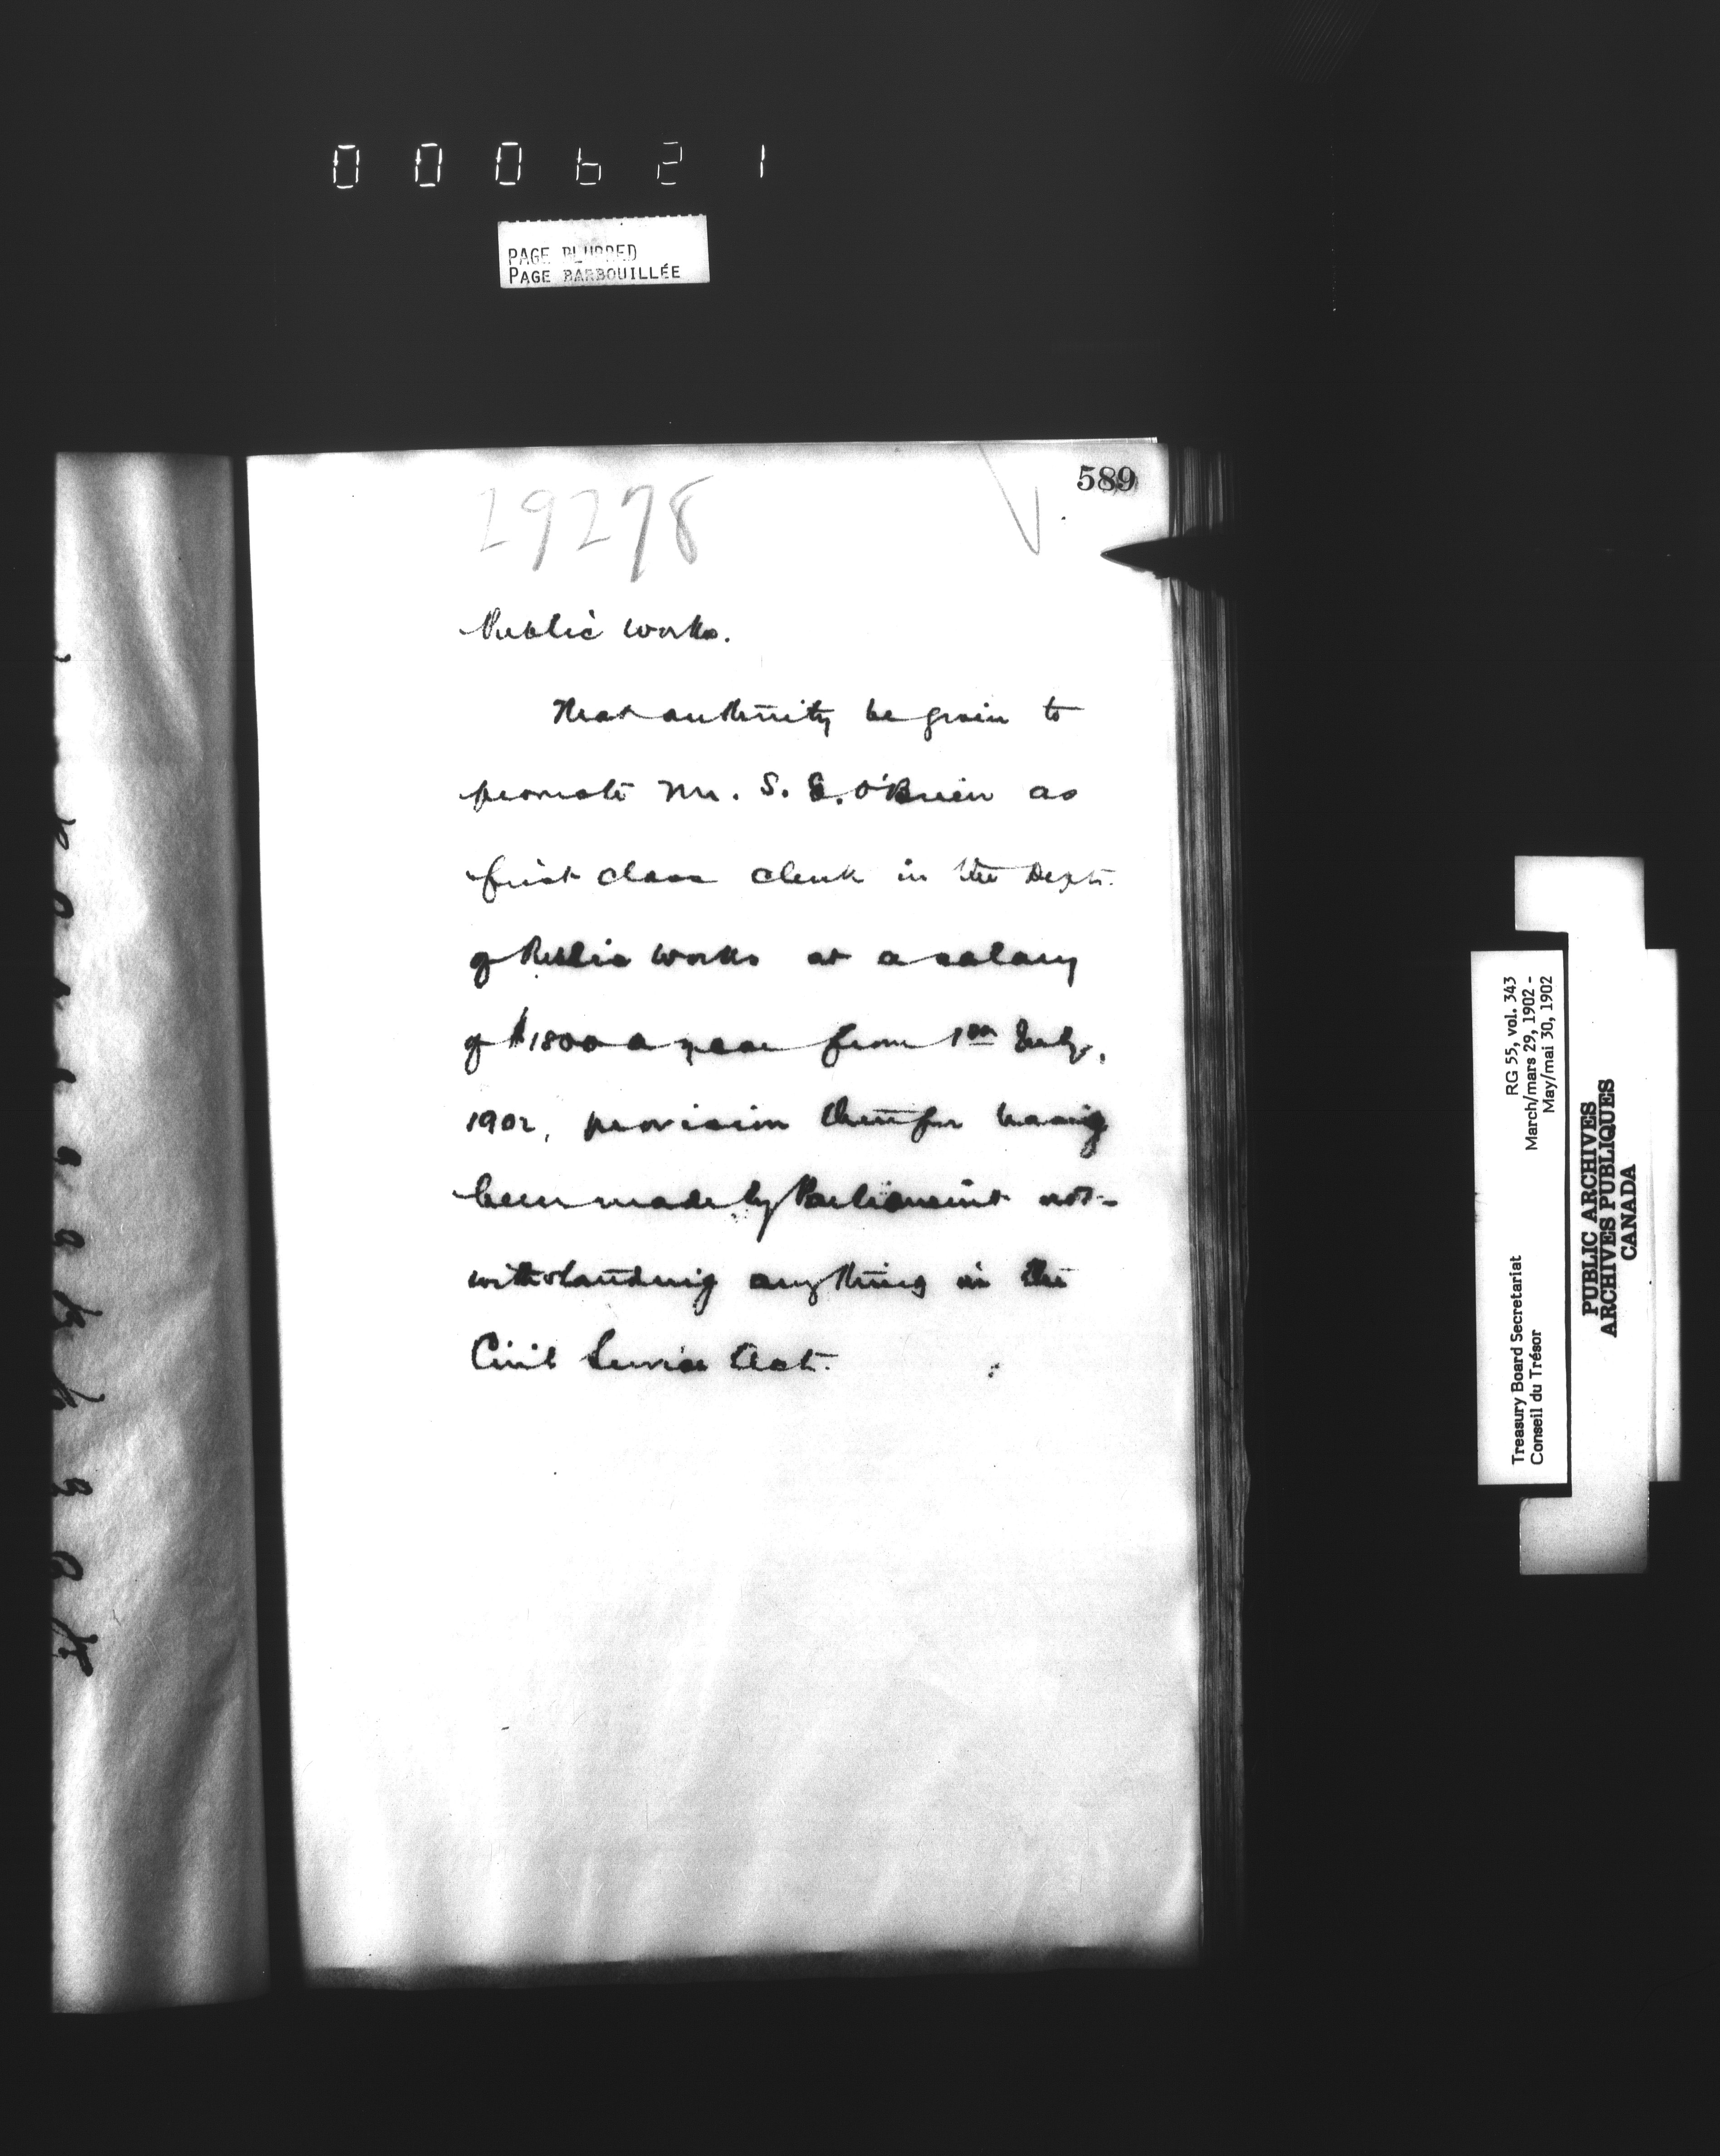 000621
PAGE BLURRED
PAGE BARBOUILLÉE
589
29278
Public Works.
That authority be given to
promote Mr. S. E. O'Brien as
first class clerk in the Dept.
of Public Works at a salary
of $1800 a year from 1st July,
1902, provision therefor having
been made by Parliament not-
withstanding anything in the
Civil Service Act.
Treasury Board Secretariat
Conseil du Trésor
RG 55, vol. 343
March/mars 29, 1902 -
May/mai 30, 1902
PUBLIC ARCHIVES
ARCHIVES PUBLIQUES
CANADA